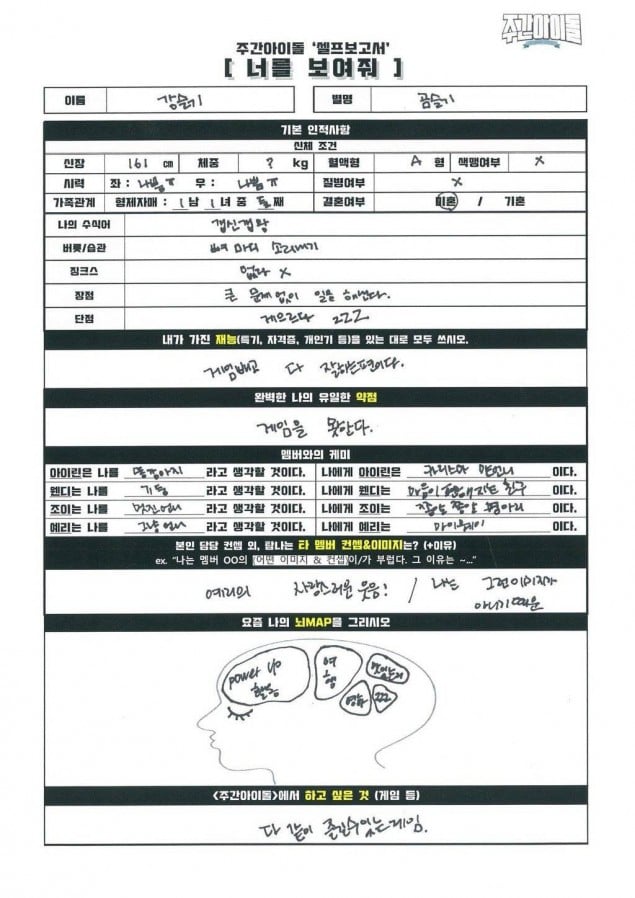 주간아이돌
주간아이돌 '셀프보고서'
[ 너를 보여줘 ]
이름 강슬기 별명 곰슬기
기본 인적사항
신체 조건
신장 161 cm 체중 ? kg 혈액형 A 형 색맹여부 X
시력 좌 : 나쁨ㅠ 우 : 나쁨ㅠ 질병여부 X
가족관계 형제자매 : 1 남 1 녀 중 둘 째 결혼여부 미혼 / 기혼
나의 수식어 갭신갭왕
버릇/습관 뼈 마디 소리내기
징크스 없다 X
장점 큰 문제없이 일을 해낸다.
단점 게으르다 zzz
내가 가진 재능(특기, 자격증, 개인기 등)을 있는 대로 모두 쓰시오.
게임빼고 다 잘하는편이다.
완벽한 나의 유일한 약점
게임을 못한다.
멤버와의 케미
아이린은 나를 똥강아지 라고 생각할 것이다. 나에게 아이린은 카리스마 맏언니 이다.
웬디는 나를 기둥 라고 생각할 것이다. 나에게 웬디는 마음이 편해지는 친구 이다.
조이는 나를 멋진언니 라고 생각할 것이다. 나에게 조이는 병아리 이다.
예리는 나를 그냥 언니 라고 생각할 것이다. 나에게 예리는 마이웨이 이다.
본인 담당 컨셉 외, 탐나는 타 멤버 컨셉&이미지는? (+이유)
ex. "나는 멤버 OO의 [어떤 이미지 & 컨셉]이/가 부럽다. 그 이유는 ~..."
예리의 사랑스러운 웃음! / 나는 그런이미지가
아니기 때문
요즘 나의 뇌MAP을 그리시오
power up
활동
여
행
맛있는거
영화
zzz
<주간아이돌>에서 하고 싶은 것 (게임 등)
다 같이 즐길수있는게임.